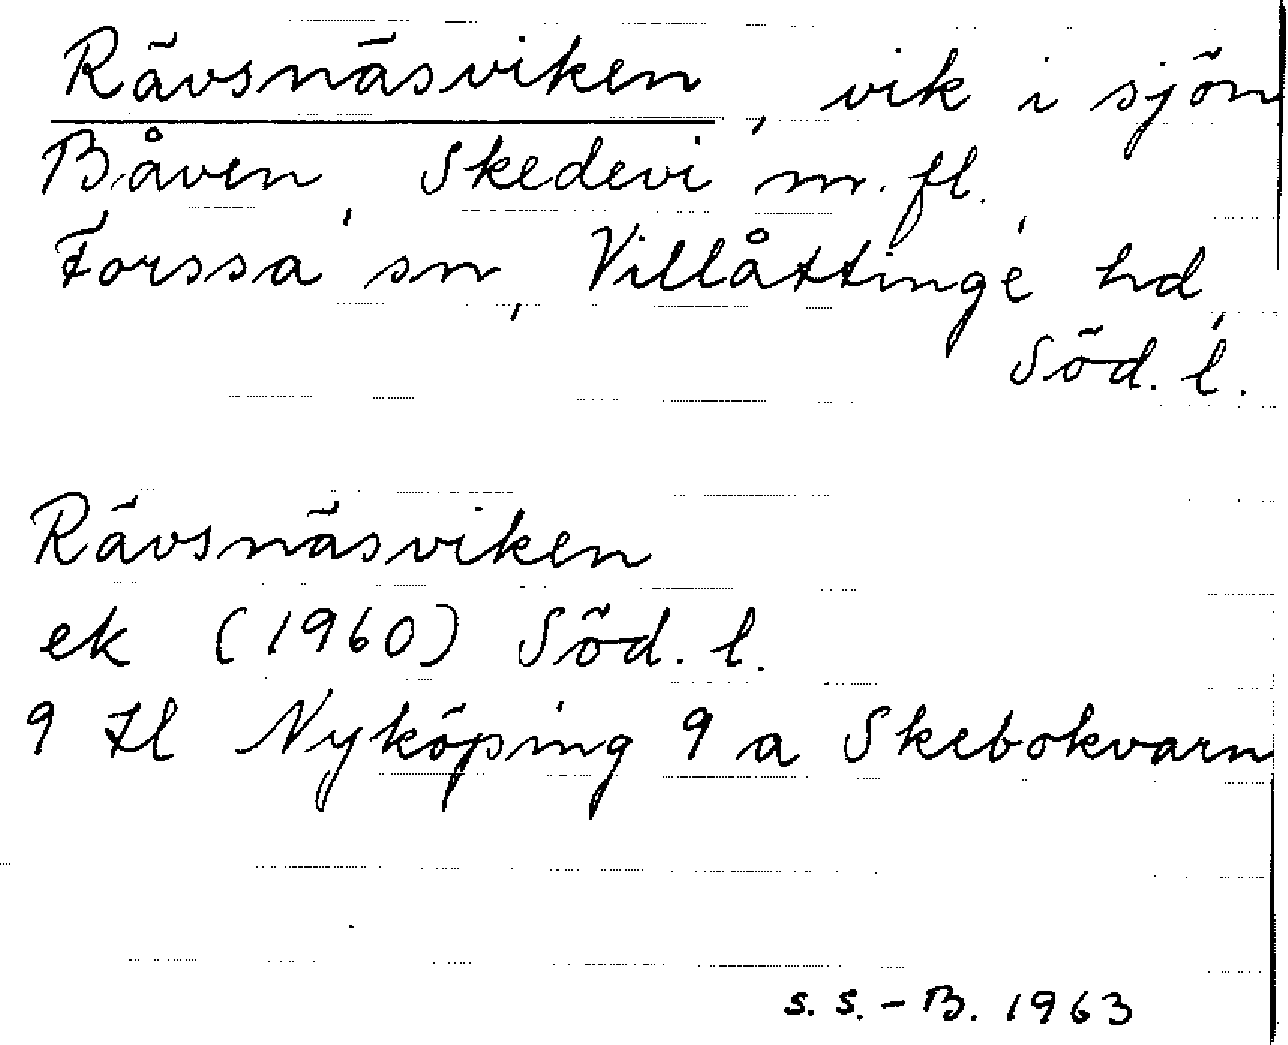 Rävsnäsviken, vik i sjön
Båven, Skedevi m. fl.,
Forssa sn, Villåttinge hd,
Söd. l.
Rävsnäsviken
ek (1960) Söd. l.
9 H Nyköping 9 a Skebokvarn
S. S.-B. 1963